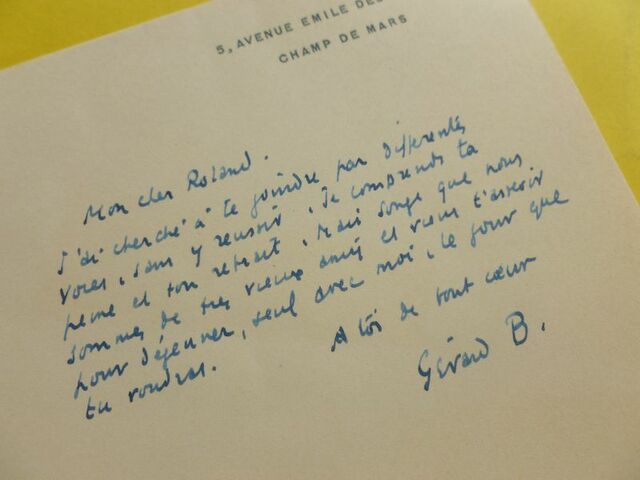 5, AVENUE EMILE DES
CHAMP DE MARS
Mon cher Roland.
J'ai cherché à te joindre par différentes
voies, sans y réussir. Je comprends ta
peine et ton retrait. Mais songe que nous
sommes de très vieux amis et viens t'asseoir
pour déjeuner, seul avec moi, le jour que
tu voudras.
A toi de tout cœur
Gérard B.